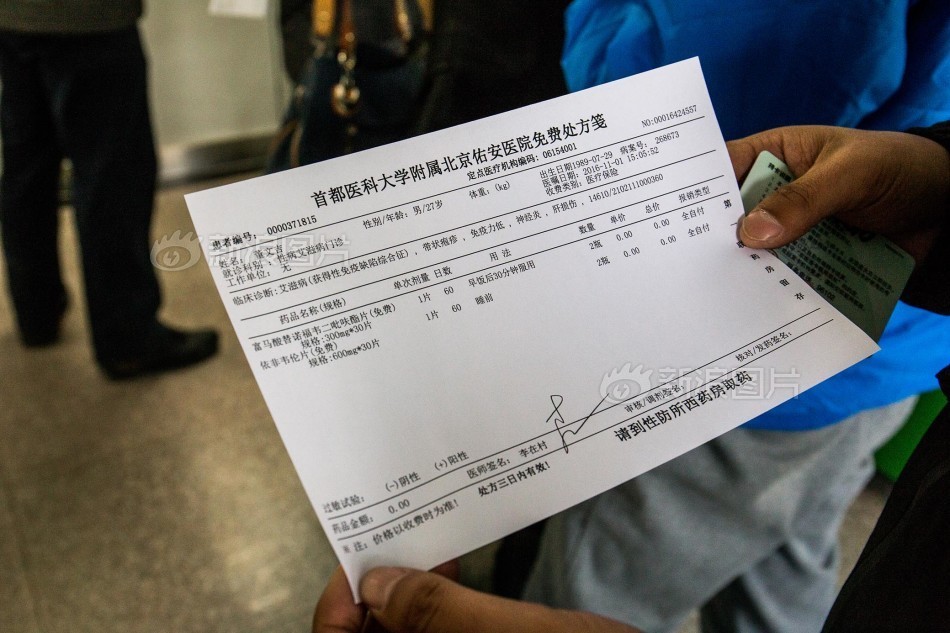 首都医科大学附属北京佑安医院免费处方笺
NO:00016424557
定点医疗机构编码:06154001
患者编号: 0000371815 性别/年龄: 男/27岁 体重: (kg) 出生日期1989-07-29 病案号: 268673
姓名: 董文吉 医嘱日期: 2016-11-01 15:05:52
就诊科别: 性病艾滋病门诊 收费类别: 医疗保险
工作单位: 无
临床诊断: 艾滋病(获得性免疫缺陷综合征), 带状疱疹, 免疫力低, 神经炎, 肝损伤, 14610/2102111000360
药品名称(规格) 单次剂量 日数 用 法 数量 单价 总价 报销类型
富马酸替诺福韦二吡呋酯片(免费) 1片 60 早饭后30分钟服用 2瓶 0.00 0.00 全自付
规格:300mg*30片
依非韦伦片(免费) 1片 60 睡前 2瓶 0.00 0.00 全自付
规格:600mg*30片
第
药
房
留
存
过敏试验: (-)阴性 (+)阳性
药品金额: 0.00 医师签名: 李在村 审核/调剂签名: 核对/发药签名:
※ 注: 价格以收费时为准! 处方三日内有效! 请到性防所西药房取药
新浪图片
新浪图片